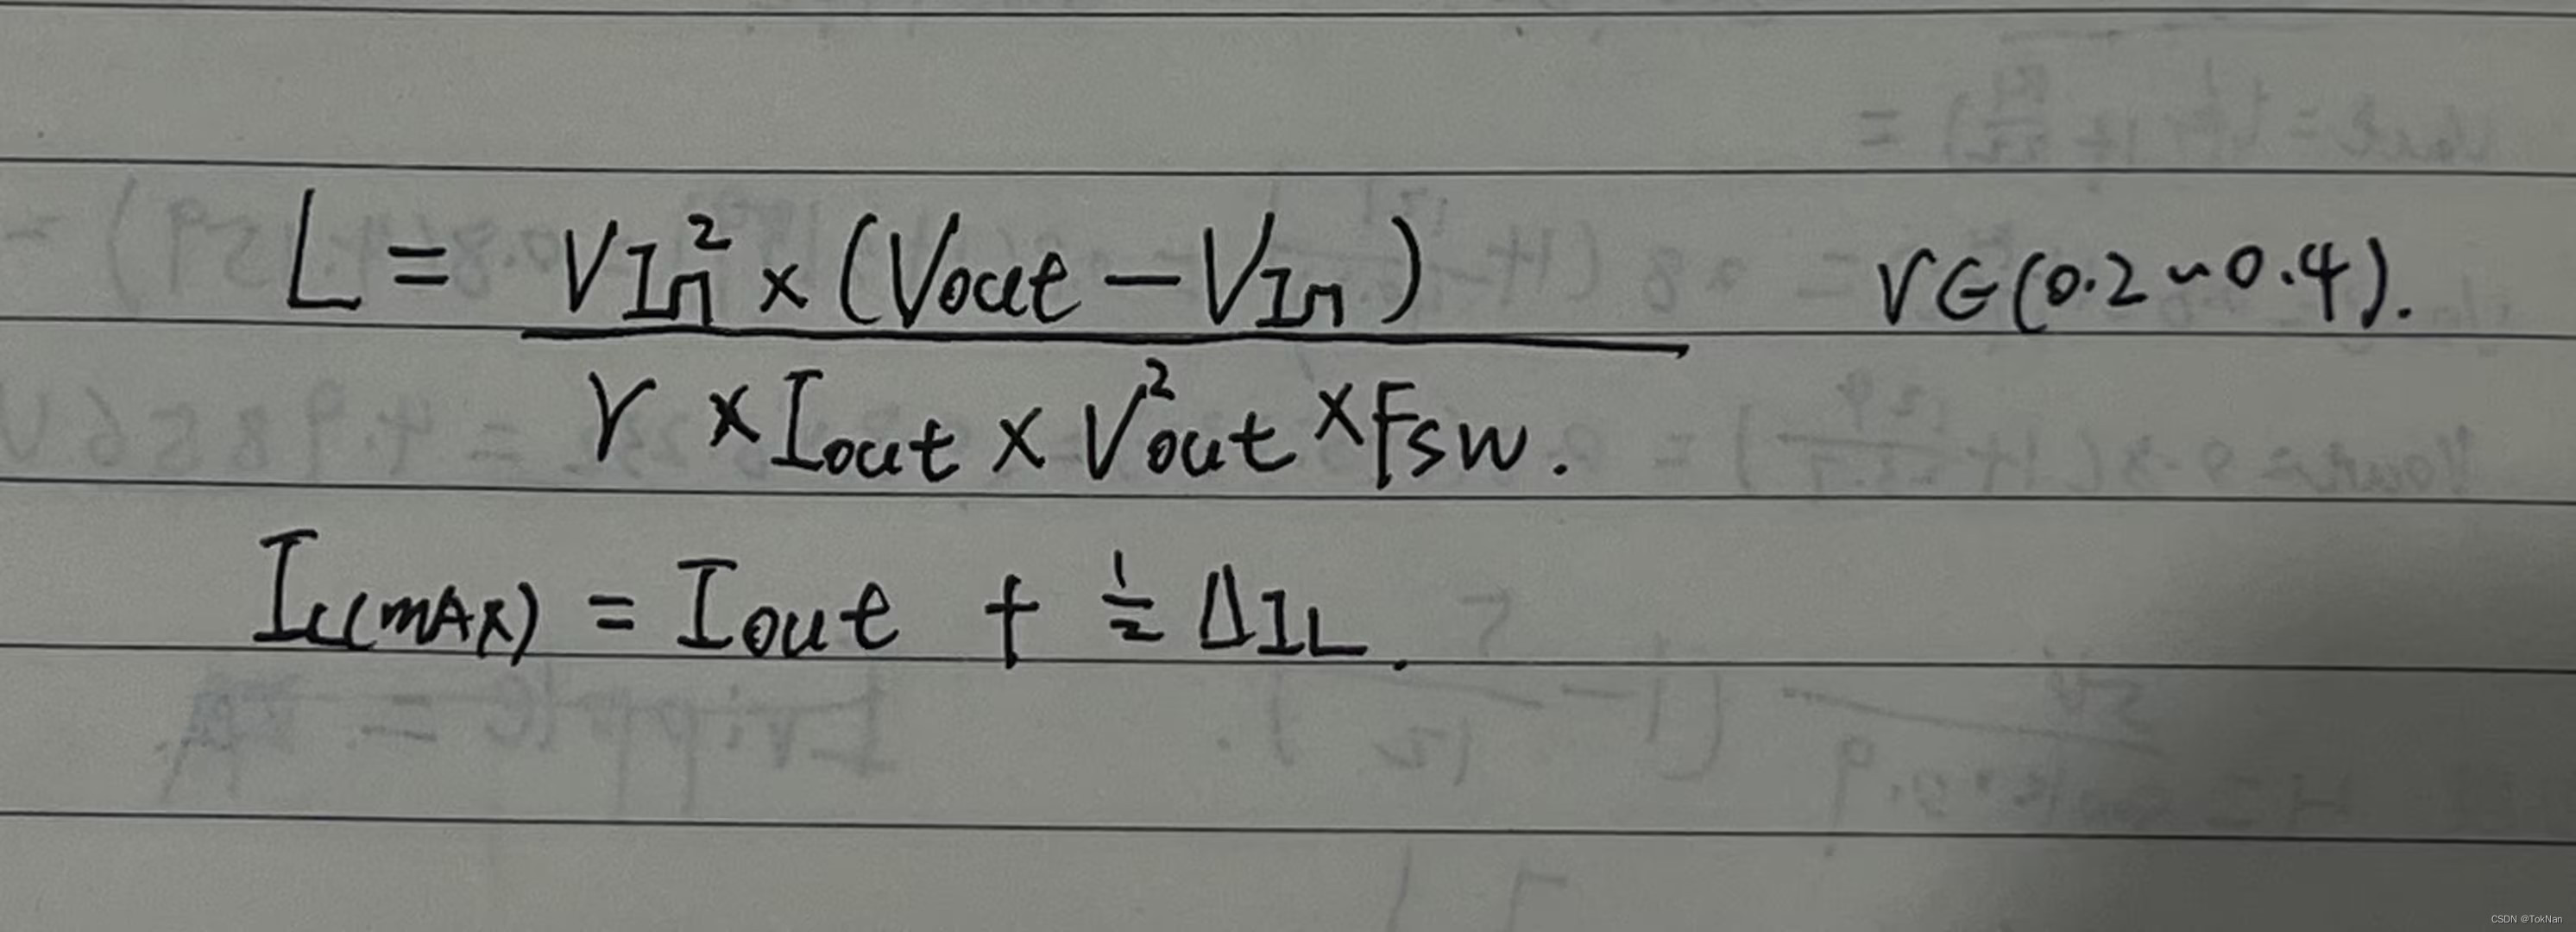 L = VIn² × (Vout − VIn) / r × Iout × V²out × Fsw.
r∈(0.2~0.4).
IL(MAX) = Iout + ½ ΔIL.
CSDN @TokNan